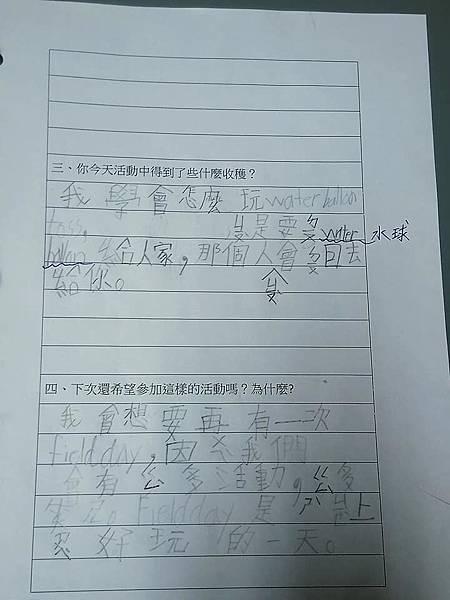 三、你今天活動中得到了些什麼收穫？
我學會怎麼玩water ballon
toss, 是要 water 水球
ballon 給人家，那個人會 回去
給你。
四、下次還希望參加這樣的活動嗎？為什麼?
我會想要再有一次
field day，因 我們
會有 多活動，多
Field day 是 上
好玩的一天。